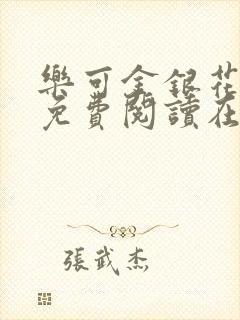 樂可金銀花
免費閱讀在
張武杰